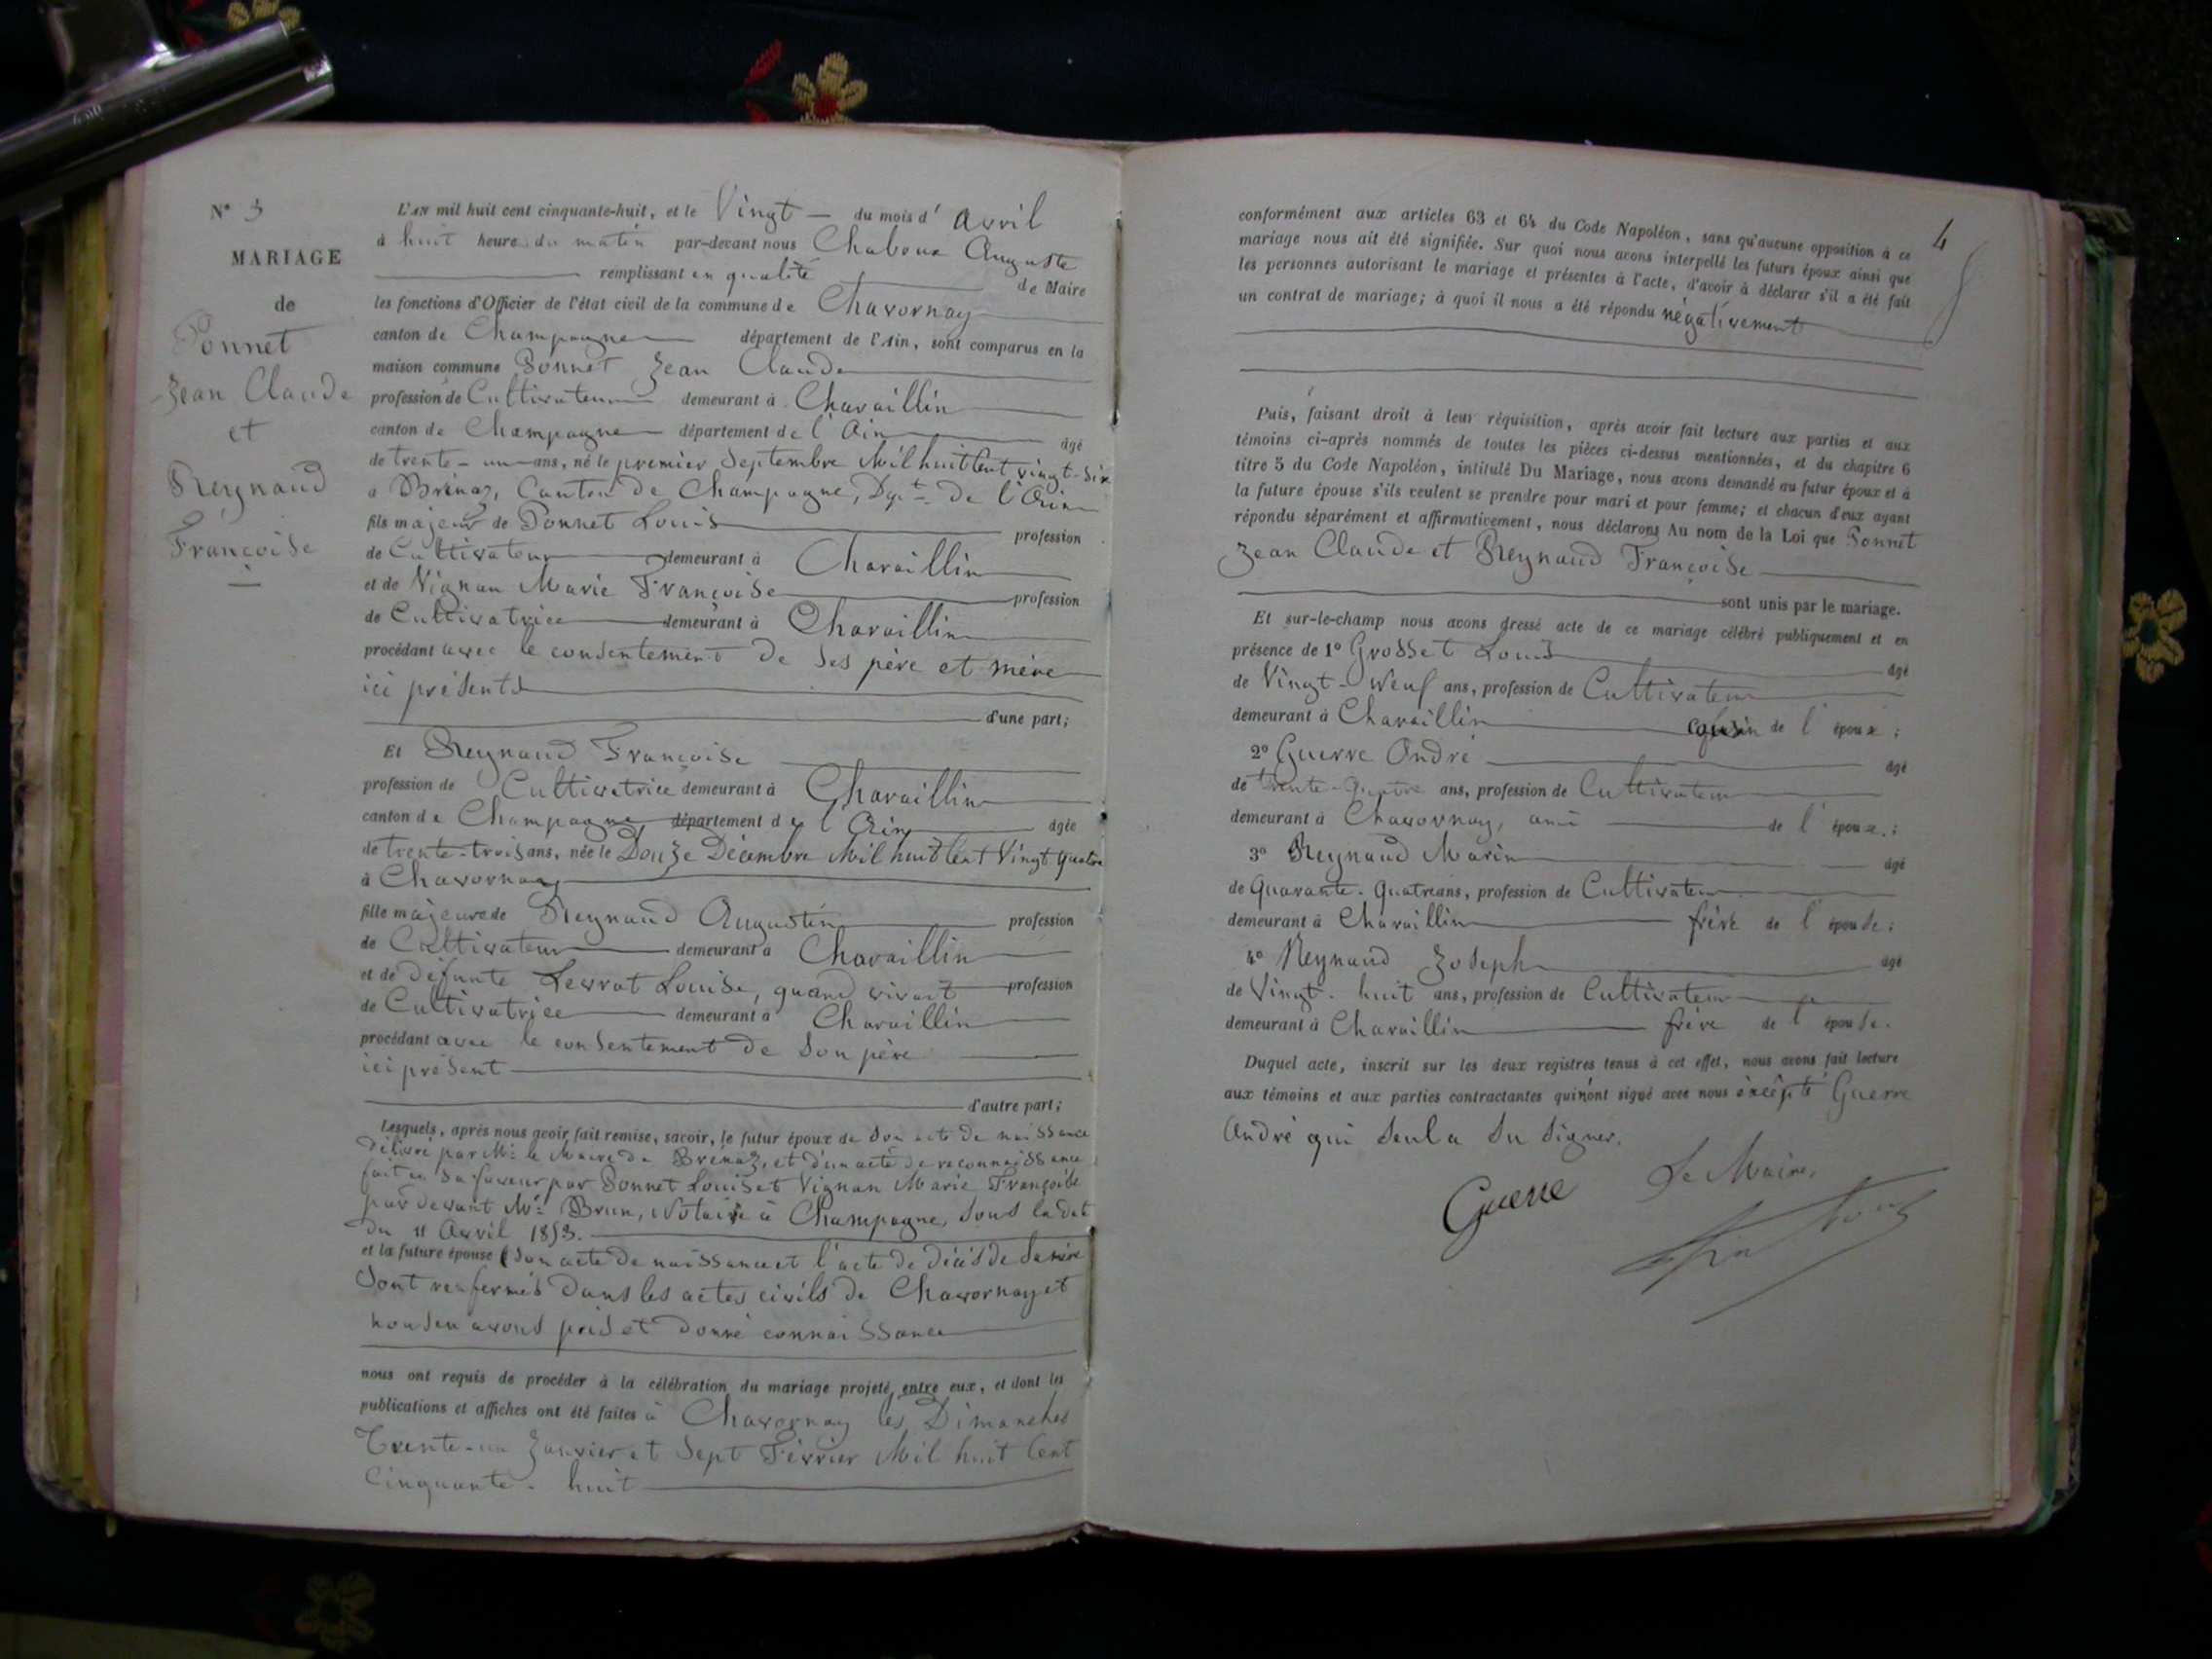 N° 3
MARIAGE
de
Ponnet
Jean Claude
et
Reynaud
Françoise
L'AN mil huit cent cinquante-huit, et le Vingt — du mois d' avril
à huit heure du matin par-devant nous Chaboux Auguste
remplissant en qualité de Maire
les fonctions d'Officier de l'état civil de la commune de Chavornay
canton de Champagne département de l'Ain, sont comparus en la
maison commune Ponnet Jean Claude
profession de Cultivateur demeurant à Charaillin
canton de Champagne département de l'Ain âgé
de trente-un ans, né le premier Septembre Mil huit Cent vingt-Six
a Brénaz, Canton de Champagne, Dpt de l'Ain
fils majeur de Ponnet Louis profession
de Cultivateur demeurant à Charaillin
et de Vignan Marie Françoise profession
de Cultivatrice demeurant à Charaillin
procédant avec le consentement de Ses père et mère
ici présents
d'une part;
Et Reynaud Françoise
profession de Cultivatrice demeurant à Charaillin
canton de Champagne département de l'Ain âgée
de trente-trois ans, née le Douze Décembre Mil huit Cent Vingt quatre
à Chavornay
fille majeure de Reynaud Augustin profession
de Cultivateur demeurant à Charaillin
et de défunte Levrat Louise, quand vivait profession
de Cultivatrice demeurant à Charaillin
procédant avec le consentement de Son père
ici présent
d'autre part;
Lesquels, après nous avoir fait remise, savoir, le futur époux de Son acte de naissance
Délivré par Mr le Maire de Brénaz, et d'un acte de reconnaissance
fait en Sa faveur par Ponnet Louis et Vignan Marie Françoise
par devant Mr Brun, Notaire à Champagne, Sous la dat
du 11 Avril 1853.
et la future épouse (Son acte de naissance et l'acte de décès de Sa mère
Sont renfermés dans les actes civils de Chavornay et
nous en avons pris et donné connaissance
nous ont requis de procéder à la célébration du mariage projeté entre eux, et dont les
publications et affiches ont été faites à Chavornay les Dimanches
Trente-un Janvier et Sept Février Mil huit Cent
Cinquante-huit
4
conformément aux articles 63 et 64 du Code Napoléon, sans qu'aucune opposition à ce
mariage nous ait été signifiée. Sur quoi nous avons interpellé les futurs époux ainsi que
les personnes autorisant le mariage et présentes à l'acte, d'avoir à déclarer s'il a été fait
un contrat de mariage; à quoi il nous a été répondu négativement
Puis, faisant droit à leur réquisition, après avoir fait lecture aux parties et aux
témoins ci-après nommés de toutes les pièces ci-dessus mentionnées, et du chapitre 6
titre 5 du Code Napoléon, intitulé Du Mariage, nous avons demandé au futur époux et à
la future épouse s'ils veulent se prendre pour mari et pour femme; et chacun d'eux ayant
répondu séparément et affirmativement, nous déclarons Au nom de la Loi que Ponnet
Jean Claude et Reynaud Françoise
sont unis par le mariage.
Et sur-le-champ nous avons dressé acte de ce mariage célébré publiquement et en
présence de 1° Grosset Louis âgé
de Vingt-Neuf ans, profession de Cultivateur
demeurant à Charaillin cousin de l'époux;
2° Guerre André âgé
de trente-quatre ans, profession de Cultivateur
demeurant à Chavornay, ami de l'époux.;
3° Reynaud Marin âgé
de Quarante-Quatre ans, profession de Cultivateur
demeurant à Charaillin frère de l'épouse;
4° Reynaud Joseph âgé
de Vingt-huit ans, profession de Cultivateur
demeurant à Charaillin frère de l'épouse.
Duquel acte, inscrit sur les deux registres tenus à cet effet, nous avons fait lecture
aux témoins et aux parties contractantes qui n'ont signé avec nous excepté Guerre
André qui Seul a Su Signer.
Le Maire,
Guerre